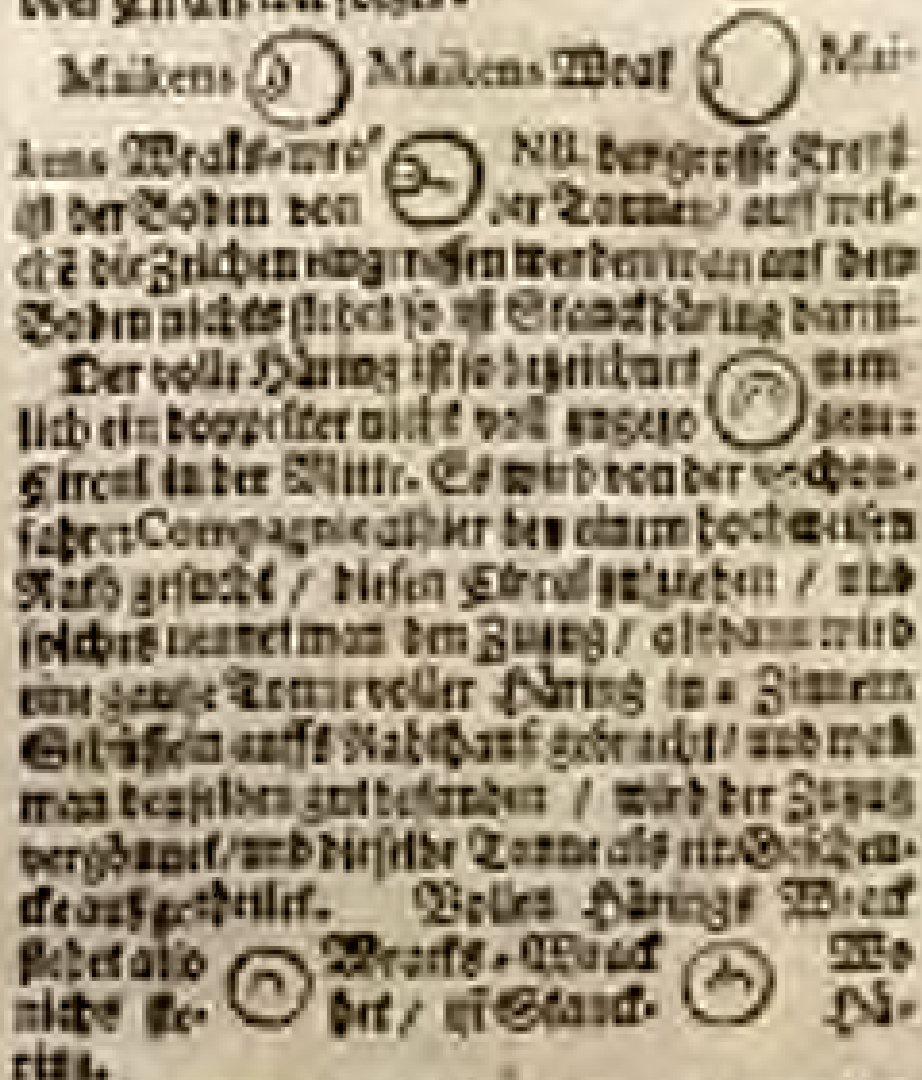 Maikens Maikens Wrak Mai-
kens Wraks-wrak NB. der grosse Kreiß
ist der Boden von der Tonnen / auff wel-
che die Zeichen eingerissen werden wan auf dem
Boden nichts stehet so ist Stanckhäring darin.
Der volle Häring ist so bezeichnet nem-
lich ein doppelter nicht voll gezogener
Circul in der Mitte. Es wird von der
fahrer Compagnie alhier bey einem hochweisen
Rath gesucht / diesen Circul zuziehen / und
solches nennet man den Zuzug / alsdann wird
eine gantze Tonne voller Häring in Zinnern
Schüsseln auffs Rahthauß gebracht / und wan
man denselben gut befunden / wird der Zuzug
vergönnet / und dieselbe Tonne als ein Geschen-
cke außgetheilet. Vollen Härings Wrack
stehet also Wracks-Wrack Wo
nichts ste- het / ist Stanck- Hä-
ring.